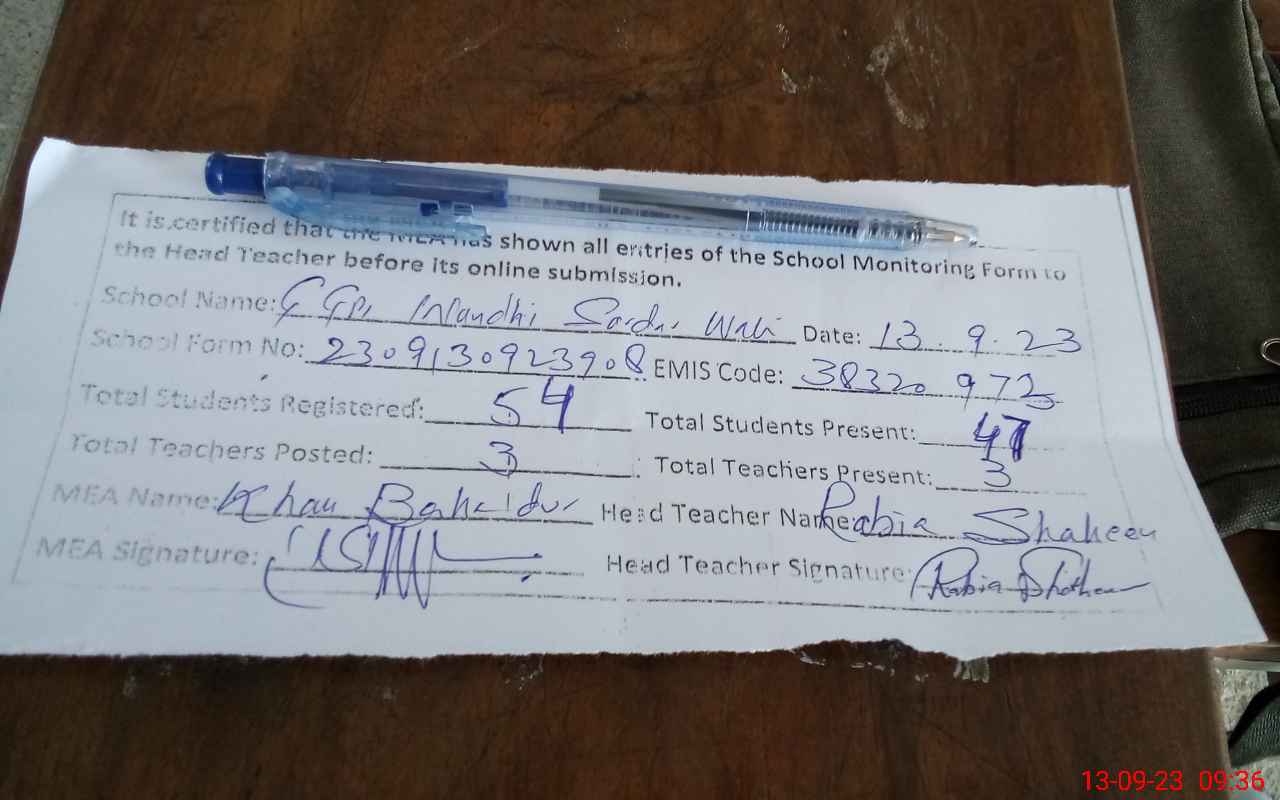 It is certified that the MEA has shown all entries of the School Monitoring Form to
the Head Teacher before its online submission.
School Name: GGPS Mandhi Sardar Wali Date: 13.9.23
School Form No: 2309130923908 EMIS Code: 38320973
Total Students Registered: 54 Total Students Present: 47
Total Teachers Posted: 3 Total Teachers Present: 3
MEA Name: Khan Bahadur Head Teacher Name: Rabia Shaheen
MEA Signature: Head Teacher Signature: Rabia Shaheen
13-09-23 09:36